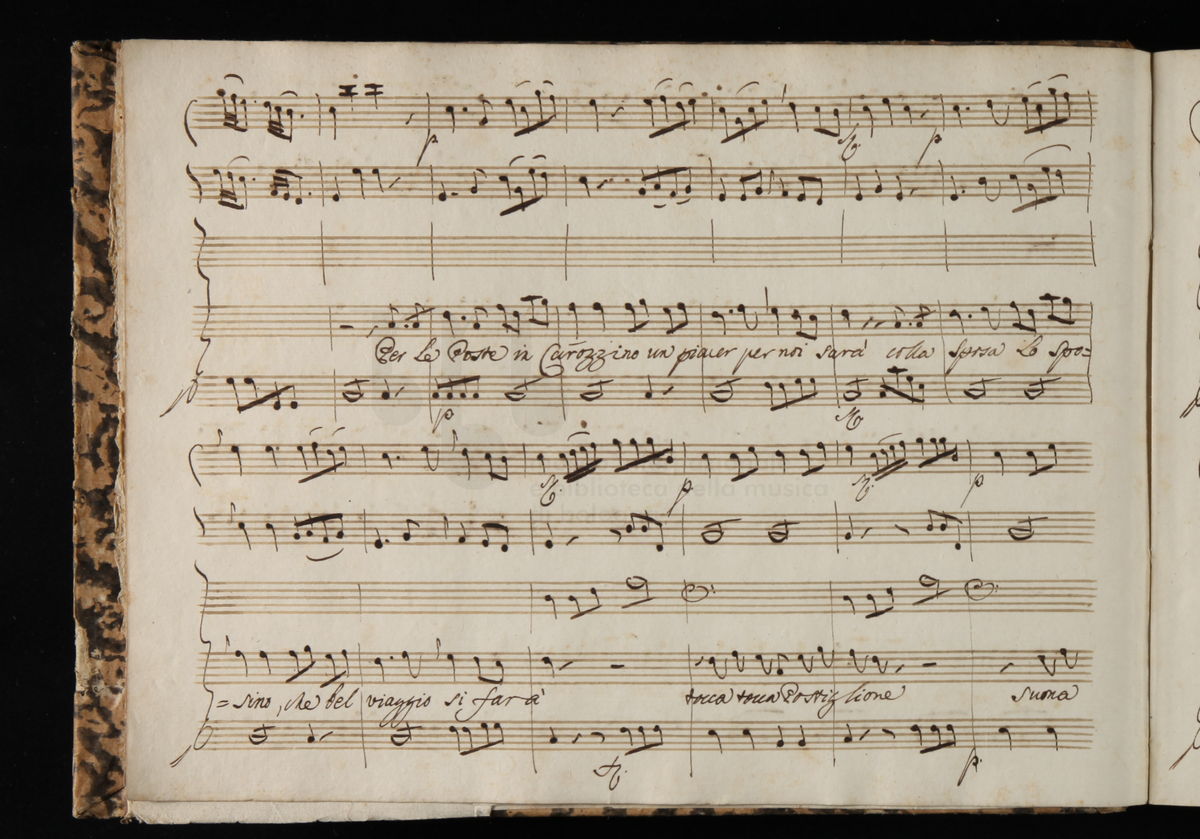 p f. p
Per le Poste in Carozzino un piacer per noi sarà colla sposa lo spo=
p f.
f. p f. p
biblioteca della musica
=sino, che bel viaggio si farà tocca tocca Postiglione suona
f. p.